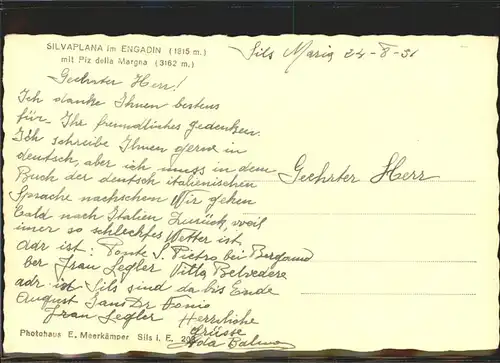 SILVAPLANA im ENGADIN (1815 m.)
mit Piz della Margna (3162 m.)
Sils Maria 24-8-31
Geehrter Herr!
Ich danke Ihnen bestens
für Ihr freundliches gedenken.
Ich schreibe Ihnen gerne in
deutsch, aber ich muss in dem
Buch der deutsch italienischen
Sprache nachsehen Wir gehen
bald nach Italien Zurück, weil
imer so schlechtes Wetter ist
adr ist: Ponte S. Pietro bei Bergamo
Ber Frau Legler Villa Belvedere
adr in Sils sind da bis Ende
August
Frau Legler
Herrliche
Grüsse
Ada
Geehrter Herr
Photohaus E. Meerkämper Sils i. E.